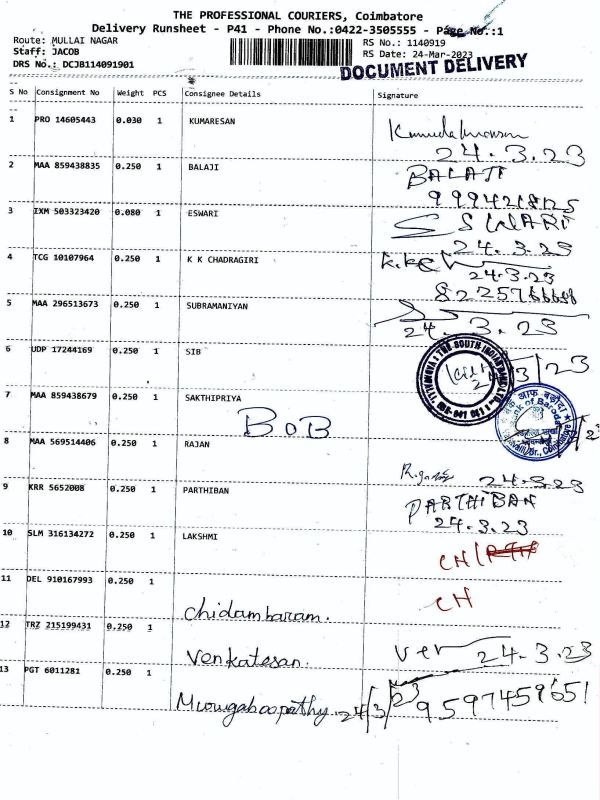 THE PROFESSIONAL COURIERS, Coimbatore
Delivery Runsheet - P41 - Phone No.:0422-3505555 - Page No.:1
Route: MULLAI NAGAR RS No.: 1140919
Staff: JACOB RS Date: 24-Mar-2023
DRS No.: DCJ8114091901 DOCUMENT DELIVERY
S No Consignment No Weight PCS Consignee Details Signature
1 PRO 14605443 0.030 1 KUMARESAN
24.3.23
2 MAA 859438835 0.250 1 BALAJI BALAJI
3 IXM 503323420 0.080 1 ESWARI ESWARI
24.3.23
4 TCG 10107964 0.250 1 K K CHADRAGIRI
24.3.23
5 MAA 296513673 0.250 1 SUBRAMANIYAN
24.3.23
6 UDP 17244169 0.250 1 SIB
7 MAA 859438679 0.250 1 SAKTHIPRIYA
BOB
8 MAA 569514406 0.250 1 RAJAN
24.3.23
9 KRR 5652008 0.250 1 PARTHIBAN PARTHIBAN
24.3.23
10 SLM 316134272 0.250 1 LAKSHMI
CH
11 DEL 910167993 0.250 1
Chidambaram. CH
12 TRZ 215199431 0.250 1
Venkatesan. Ver 24.3.23
13 PGT 6011281 0.250 1
Murugaboopathy. 24/3/23 9597459651